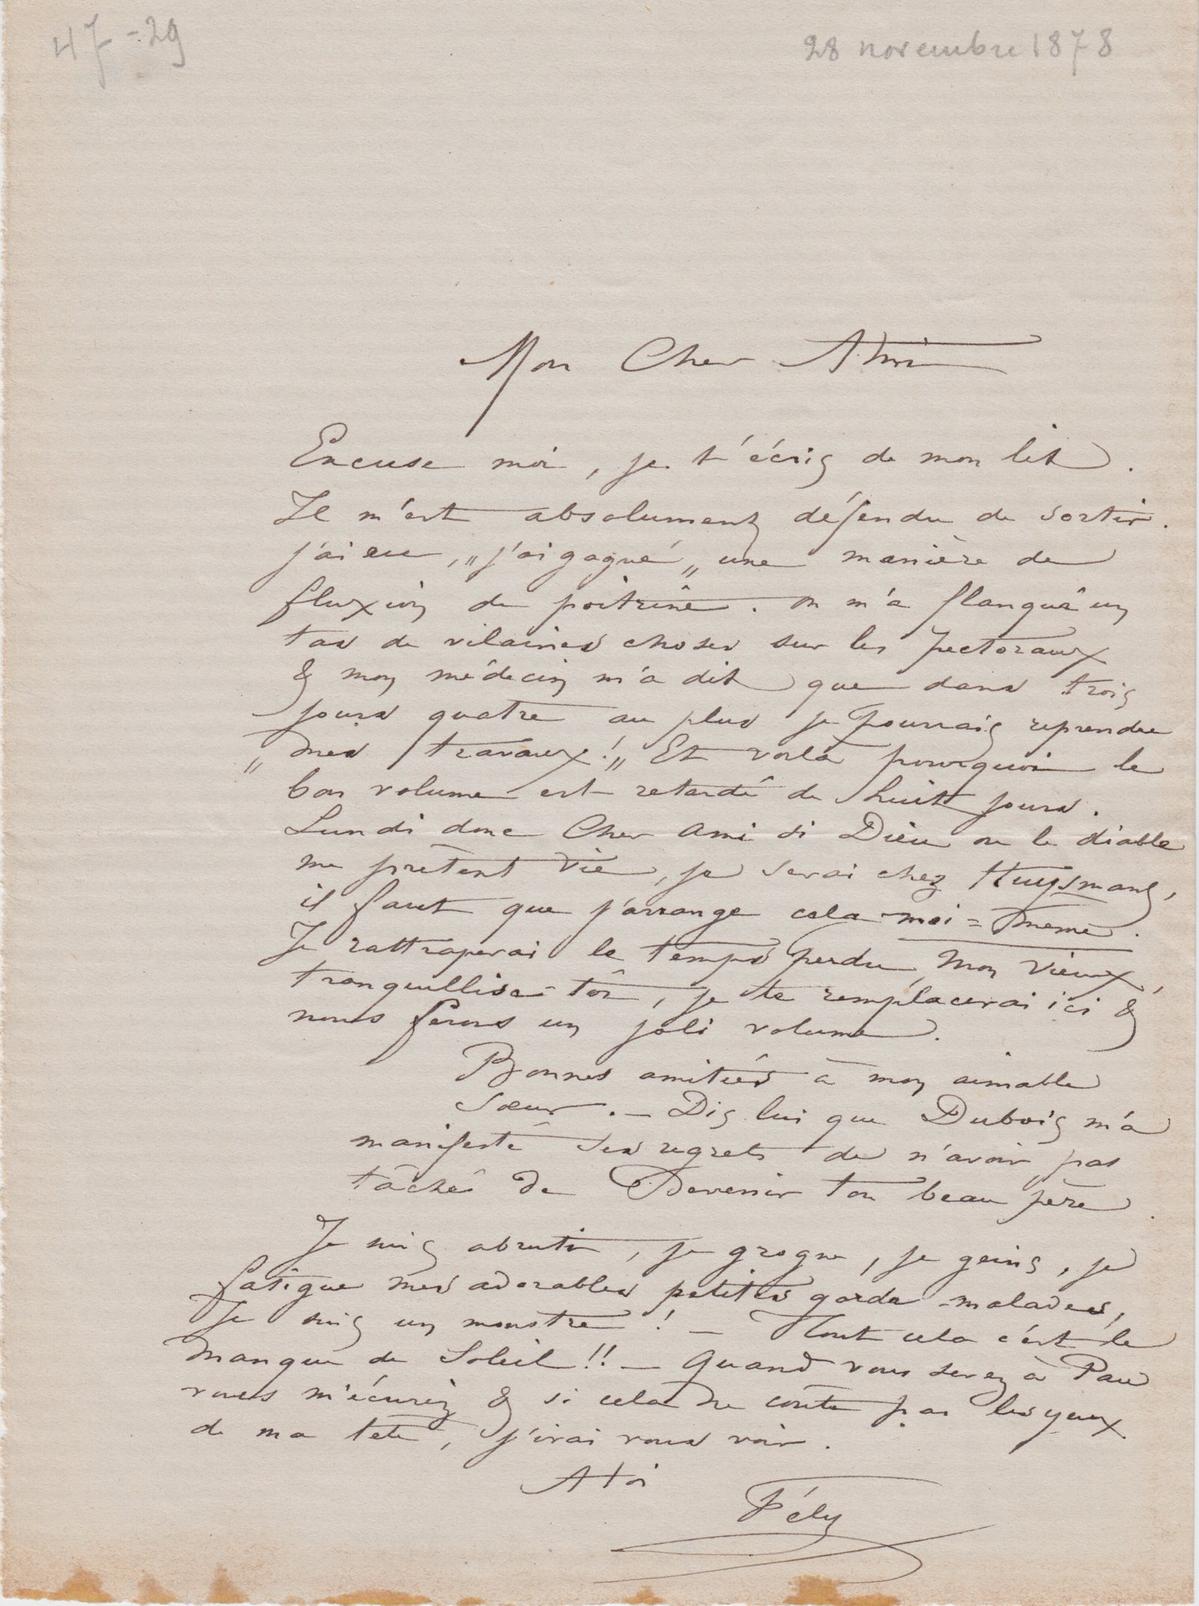 47-29
28 novembre 1878
Mon Cher
Excuse moi, je t'écris de mon lit.
Il m'est absolument défendu de sortir.
j'ai eu, „j'ai gagné„ une manière de
fluxion de poitrine. on m'a flanqué un
tas de vilaines choses sur les pectoraux
& mon médecin m'a dit que dans trois
jours quatre au plus je pourrais reprendre
„mes travaux!„ Et voilà pourquoi le
bon volume est retardé de huit jours.
Lundi donc Cher ami si Dieu ou le diable
me prêtent vie, je serai chez Huysmans,
il faut que j'arrange cela moi=même.
Je rattraperai le temps perdu, mon vieux,
tranquillise-toi, je te remplacerai ici &
nous ferons un joli volume.
Bonnes amitiés à mon aimable
Sœur. — Dis lui que Dubois m'a
manifesté ses regrets de n'avoir pas
tâché de Devenir ton beau père.
Je suis abruti, je grogne, je geins, je
fatigue mes adorables petites garde-malades,
Je suis un monstre! — Tout cela c'est le
manque de Soleil!! — Quand vous serez à Pau
vous m'écrirez & si cela ne coûte pas les yeux
de ma tête, j'irai vous voir.
A toi
Fély